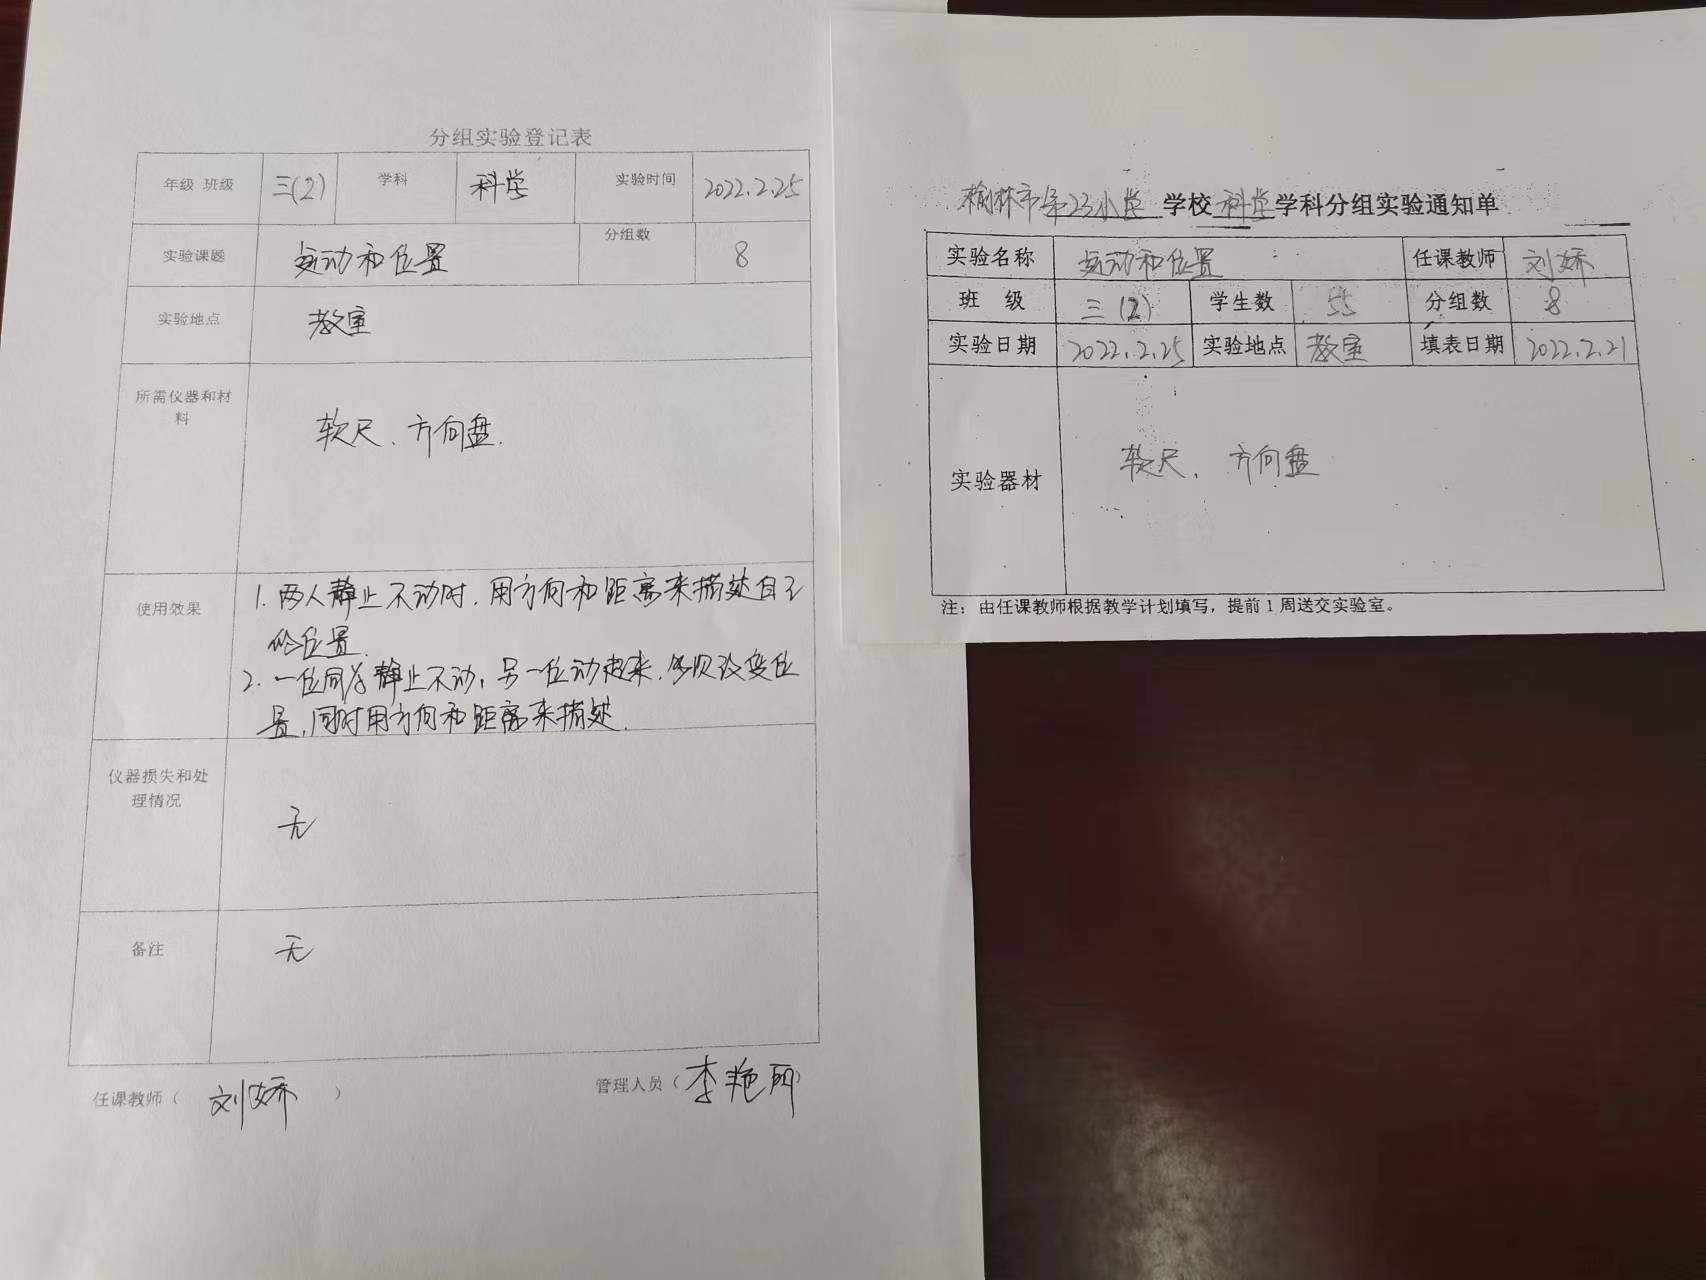 分组实验登记表
年级 班级 三(2) 学科 科学 实验时间 2022.2.25
实验课题 运动和位置 分组数 8
实验地点 教室
所需仪器和材
料
软尺、方向盘.
使用效果
1. 两人静止不动时, 用方向和距离来描述自己
的位置.
2. 一位同学静止不动, 另一位动起来, 多次改变位
置, 同时用方向和距离来描述.
仪器损失和处
理情况
无
备注 无
任课教师（ 刘娇 ） 管理人员（ 李艳 ）
榆林市第23小学 学校 科学 学科分组实验通知单
实验名称 运动和位置 任课教师 刘娇
班 级 三(2) 学生数 55 分组数 8
实验日期 2022.2.25 实验地点 教室 填表日期 2022.2.21
实验器材 软尺、方向盘
注：由任课教师根据教学计划填写，提前1周送交实验室。